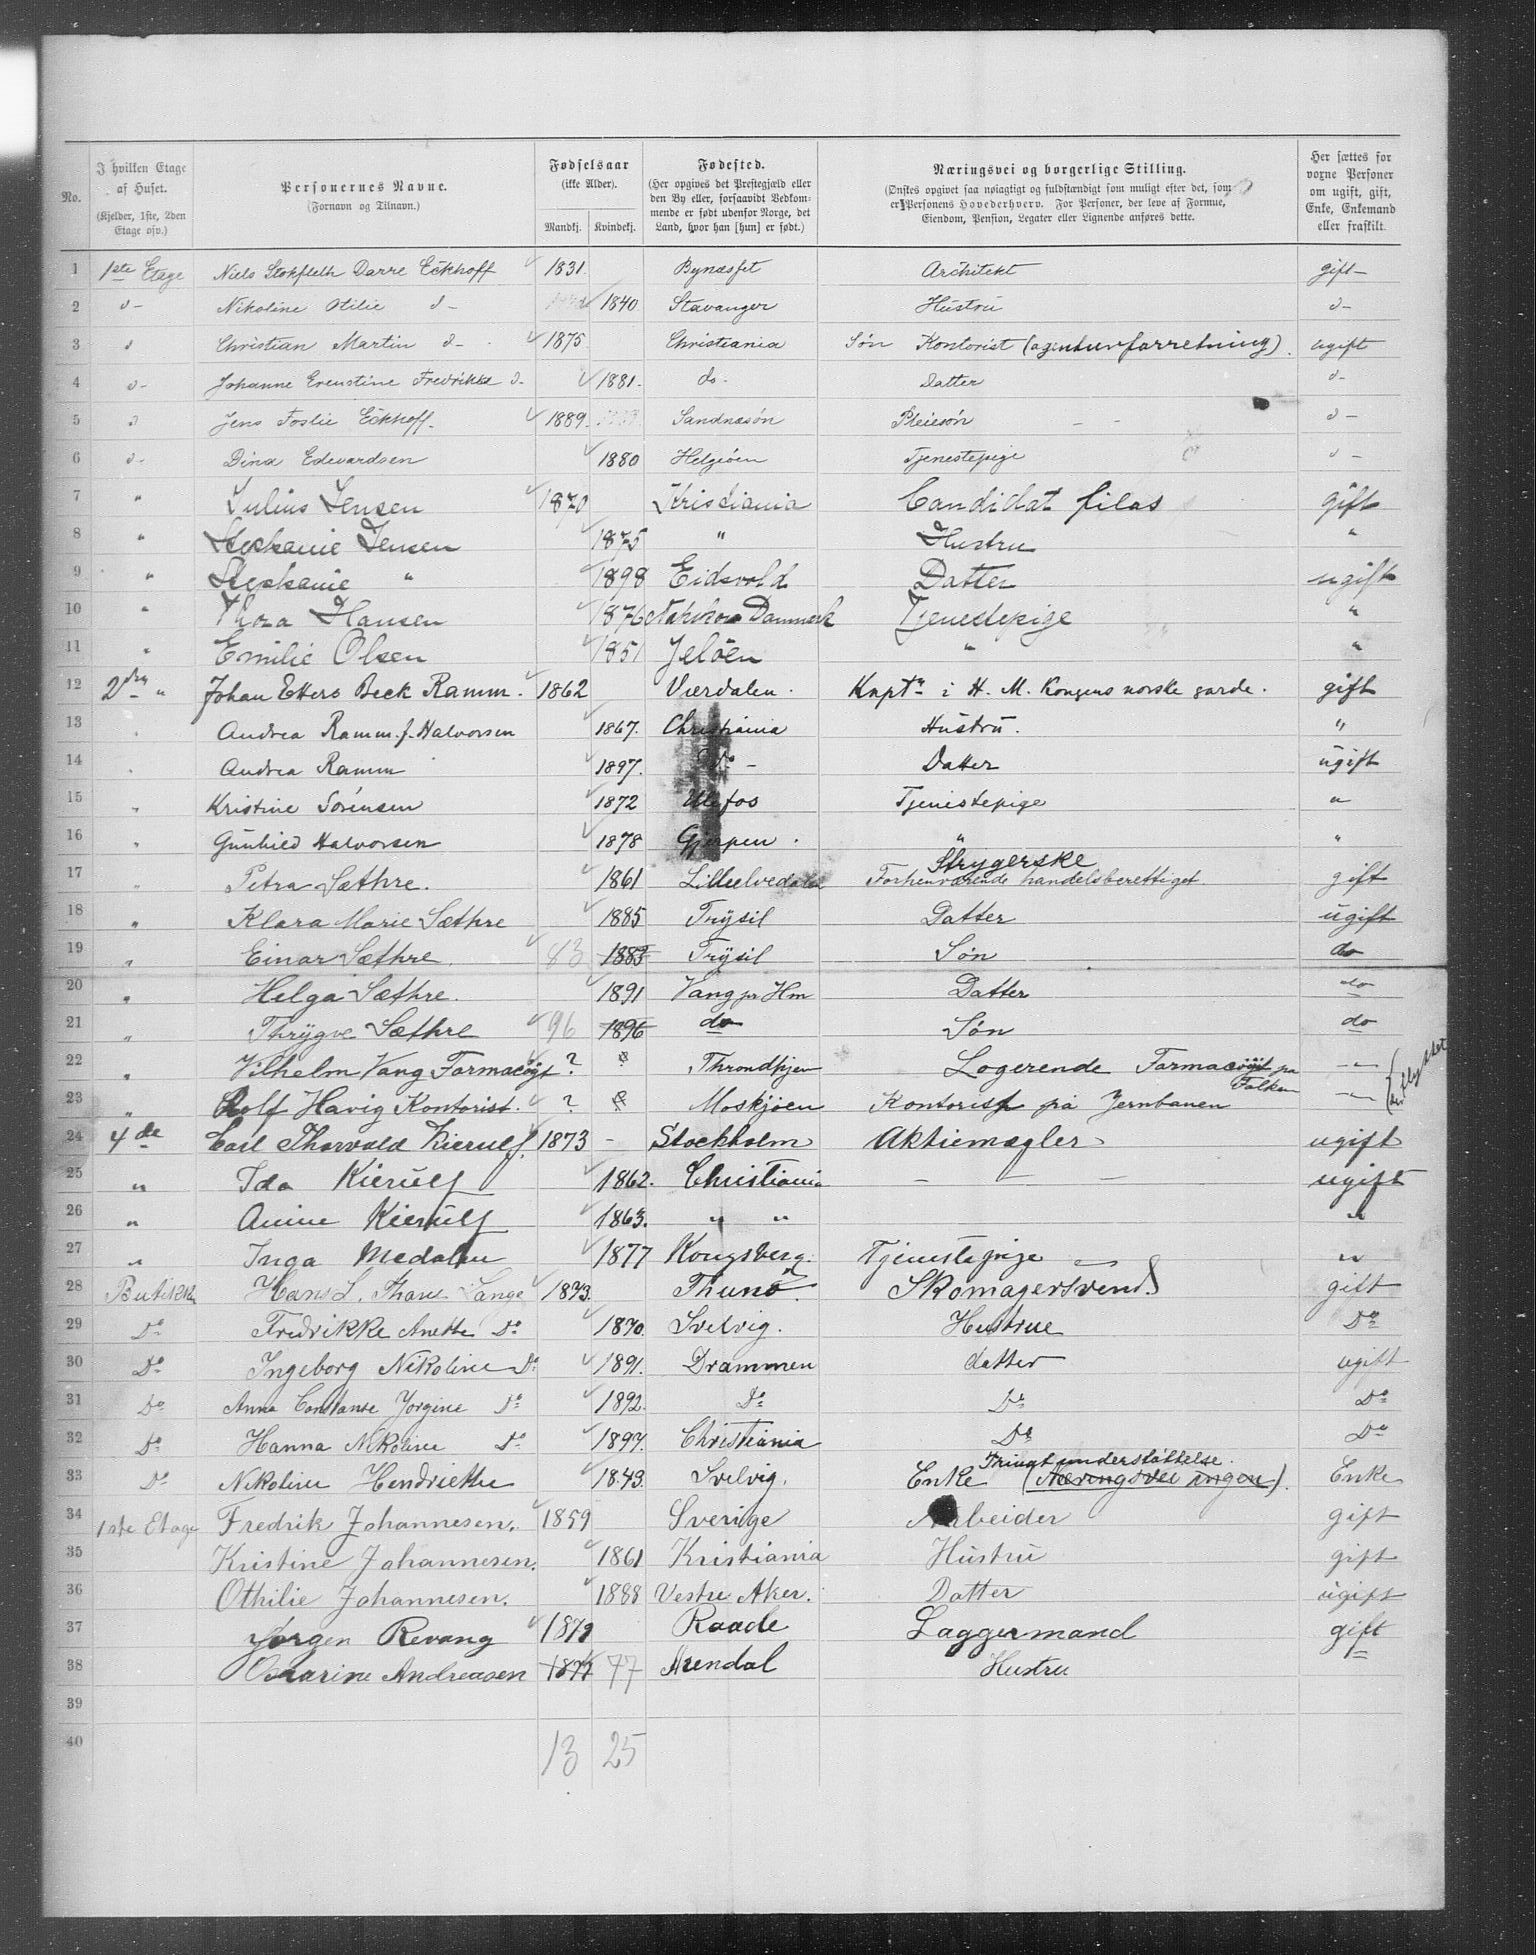 No. | I hvilken Etage af Huset. (Kjelder, 1ste, 2den Etage osv.) | Personernes Navne. (Fornavn og Tilnavn.) | Fødselsaar (ikke Alder). Mandkj. | Kvindekj. | Fødested. (Her opgives det Prestegjæld eller den By eller, forsaavidt Vedkommende er født udenfor Norge, det Land, hvor han [hun] er født.) | Næringsvei og borgerlige Stilling. (Ønskes opgivet saa nøiagtigt og fuldstændigt som muligt efter det, som er Personens Hovederhverv. For Personer, der leve af Formue, Eiendom, Pension, Legater eller Lignende anføres dette. | Her sættes for voxne Personer om ugift, gift, Enke, Enkemand eller fraskilt.
1 1ste Etage Niels Stokfleth Darre Eckhoff 1831. Bynæsset Architekt gift-
2 d- Nikoline Otilie d- 1840 Stavanger Hustru d-
3 d Christian Martin d- 1875 Christiania Søn Kontorist (agenturforretning). ugift
4 d- Johanne Ernstine Fredrikke d- 1881. do- Datter d-
5 d Jens Foslie Eckhoff. 1889. Sandnæsøn Pleiesøn - - d-
6 d- Dina Edvardsen 1880 Helgeöen Tjenestepige d-
7 " Julius Jensen 1870 Kristiania Candidat filos gift
8 " Stephanie Jensen 1875 " Hustru "
9 " Stephanie " 1898 Eidsvold Datter ugift
10 " Thora Hansen 1876 Danmark Tjenestepige "
11 " Emilie Olsen 1851 Jelöen " "
12 2den " Johan Ettero Beck Ramm. 1862 Værdalen. Kaptn i H. M. Kongens norske garde. gift
13 Andrea Ramm. f. Halvorsen 1867. Christiania Hustru. "
14 Andrea Ramm 1897. Do - Datter ugift
15 " Kristine Sörensen 1872 Ulefos Tjenestepige "
16 " Gunhild Halvorsen 1878 Gjerpen. " "
Strygerske
17 " Petra Sæthre. 1861 Lilleelvedalen Forhenværende handelsberettiget gift
18 " Klara Marie Sæthre 1885 Trysil Datter ugift
19 " Einar Sæthre. 83 1883 Trysil Søn do
20 " Helga Sæthre. 1891 Vang pr Hm Datter do
21 " Thrygve Sæthre 96 1896 do Søn do
22 " Vilhelm Vang Farmacöyt ? Throndhjem Logerende Farmacöyt pa Falken -"-
23 " Rolf Havig Kontorist. ? Moskjöen Kontorist på Jernbanen -"-
24 4de Carl Thorvald Kierulf. 1873 - Stockholm Aktiemægler- ugift
25 " Ida Kierulf 1862. Christiania - - - ugift
26 " Anine Kierulf 1863. " " "
27 " Inga Medalen 1877 Kongsberg. Tjenestepige - "
28 Butikken Hans L. Lange 1873. Skomagersvend. gift
29 Do Fredrikke Anette Do 1870. Svelvig. Hustrue Do
30 Do Ingeborg Nikoline Do 1891. Drammen datter ugift
31 Do Anna Constanse Jorgine Do 1892. Do Do Do
32 Do Hanna Nikoline Do 1897. Christiania Do Do
Privat understöttelse.
33 Do Nikoline Hendriette 1843. Svelvig. Enke (Næringsvei ingen). Enke
34 1ste Etage Fredrik Johannesen. 1859 Sverige Arbeider gift
35 Kristine Johannesen. 1861 Kristiania Hustru gift
36 Othilie Johannesen. 1888 Vestre Aker. Datter ugift
37 Jørgen Revang 1879 Raade Laggermand gift
38 Andreasen 1877 77 Arendal Hustru "
39
40
13 25